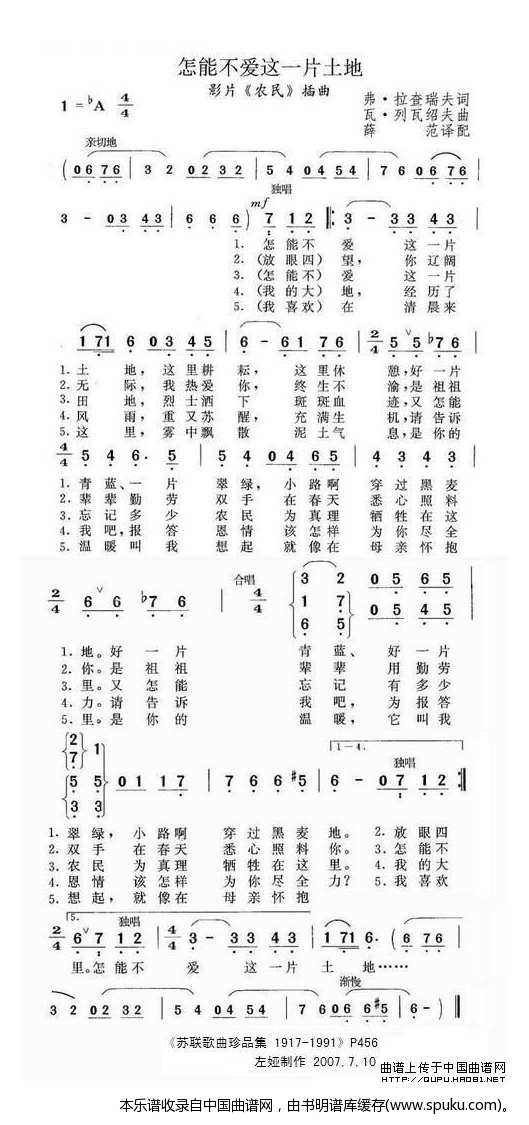 怎能不爱这一片土地
影片《农民》插曲
1 = ♭A 4/4
弗·拉查瑞夫词
瓦·列瓦绍夫曲
薛 范译配
亲切地
( 0 6 7 6 | 3 2 0 2 3 2 | 5 4 0 4 5 4 | 7 6 0 6 7 6 |
独唱
mf
3 - 0 3 4 3 | 6 6 6 ) 7 1 2 ‖: 3 - 3 3 4 3 |
1. 怎能不 爱 这一片
2. (放眼四) 望, 你辽阔
3. (怎能不) 爱 这一片
4. (我的大) 地, 经历了
5. (我喜欢) 在 清晨来
1 7 1 6 0 3 4 5 | 6 - 6 1 7 1 | 2/4 5 ∨ 5 ♭7 6 |
1. 土 地, 这里耕 耘, 这里休 憩, 好一片
2. 无 际, 我热爱 你, 终生不 渝, 是祖祖
3. 田 地, 烈士洒 下 斑斑血 迹, 又怎能
4. 风 雨, 重又苏 醒, 充满生 机, 请告诉
5. 这 里, 雾中飘 散 泥土气 息, 是你的
4/4 5 4 6. 5 | 5 4 0 4 6 5 | 4 3 0 2 4 3 |
1. 青蓝、一 片 翠绿, 小路啊 穿过黑麦
2. 辈辈勤 劳 双手 在春天 悉心照料
3. 忘记多 少 农民 为真理 牺牲在这
4. 我吧, 报 答 恩情 该怎样 为你尽全
5. 温暖叫 我 想起 就像在 母亲怀抱
合唱
2/4 6 ∨ 6 ♭7 6 | 4/4
3 2 0 5 6 5
1 7 0 5 4 5
6 5
1. 地。好 一 片 青蓝、 好一片
2. 你。是 祖 祖 辈辈 用勤劳
3. 里。又 怎 能 忘记 有多少
4. 力。请 告 诉 我吧, 为报答
5. 里。是 你 的 温暖, 它叫我
1-4.
独唱
2 7 1
5 5 0 1 1 7 | 7 6 6 ♯5 | 6 - 0 7 1 2 :‖
3 3
1. 翠绿, 小路啊 穿过黑麦 地。 2. 放眼四
2. 双手 在春天 悉心照料 你。 3. 怎能不
3. 农民 为真理 牺牲在这 里。 4. 我的大
4. 恩情 该怎样 为你尽全 力? 5. 我喜欢
5. 想起, 就像在 母亲怀抱
5.
独唱
2/4 6 ∨ 7 1 2 | 4/4 3 - 3 3 4 3 | 1 7 1 6. (6 7 6 |
里。怎能不 爱 这一片 土 地……
渐慢
3 2 0 2 3 2 | 5 4 0 4 5 4 | 7 6 0 6 6 ♯5 | 6 - ) ‖
《苏联歌曲珍品集 1917-1991》P456
左娅制作 2007.7.10
曲谱上传于中国曲谱网
HTTP://QUPU.HAO81.NET
本乐谱收录自中国曲谱网，由书明谱库缓存(www.spuku.com)。